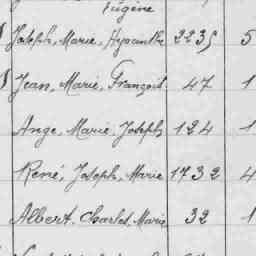 Eugène
Joseph, Marie, Hyacinthe 2235 5
Jean, Marie, François 47 1
Ange, Marie, Joseph 124 1
René, Joseph, Marie 1732 4
Albert, Charles, Marie 32 1